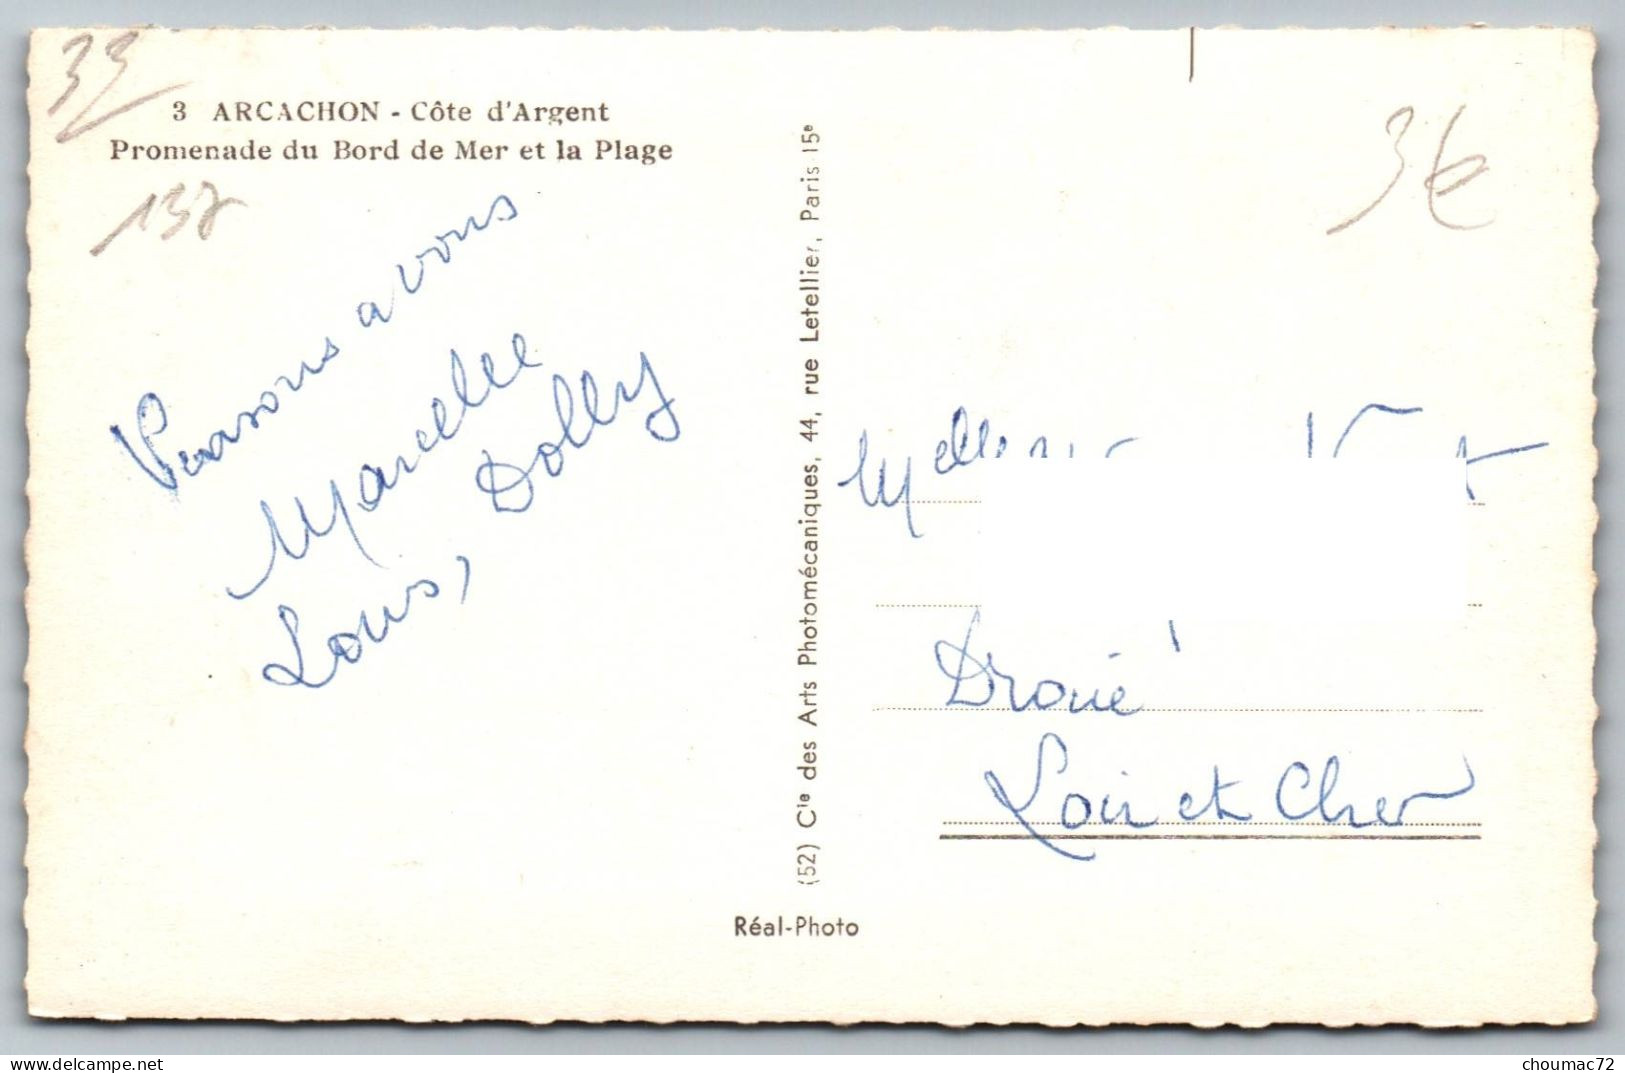 33
3 ARCACHON - Côte d'Argent
Promenade du Bord de Mer et la Plage
137
Pensons a vous
Marcelle
Louis, Dolly
(52) Cie des Arts Photomécaniques, 44, rue Letellier, Paris-15e
Réal-Photo
3€
Melle
Droué
Loir et Cher
www.delcampe.net
choumac72